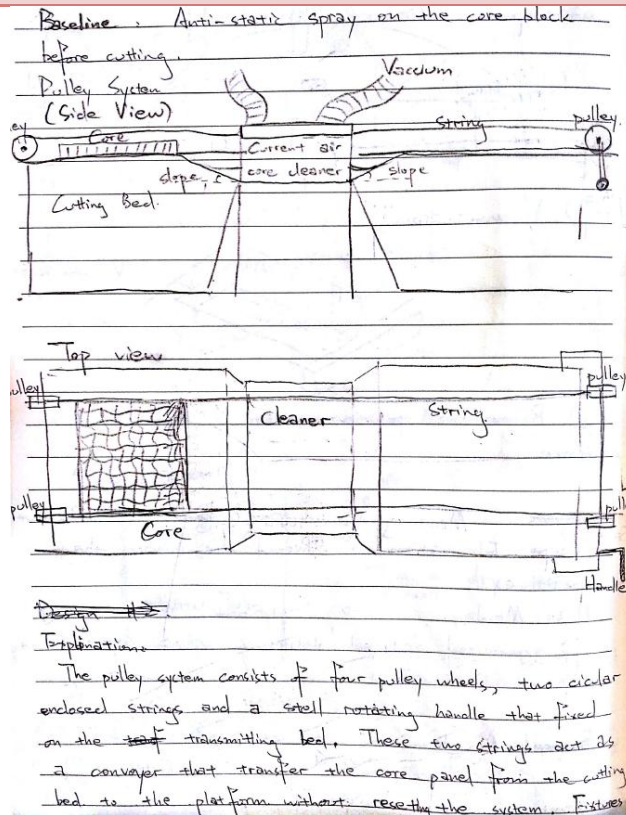 Baseline : Anti-static spray on the core block
before cutting.
Pulley System
(Side View)
Vaccum
ey
Core
String
pulley
Current air
core cleaner
slope
slope
Cutting Bed.
Top view
ulley
pulley
Cleaner
String.
pulley
pull
Core
Handle
Design #2.
Explination:
The pulley system consists of four pulley wheels, two cicular
enclosed strings and a rotating handle that fixed
on the transmitling bed. These two strings act as
a convoyer that transfer the core panel from the cutting
bed to the platform without reseting the system. Fixtures